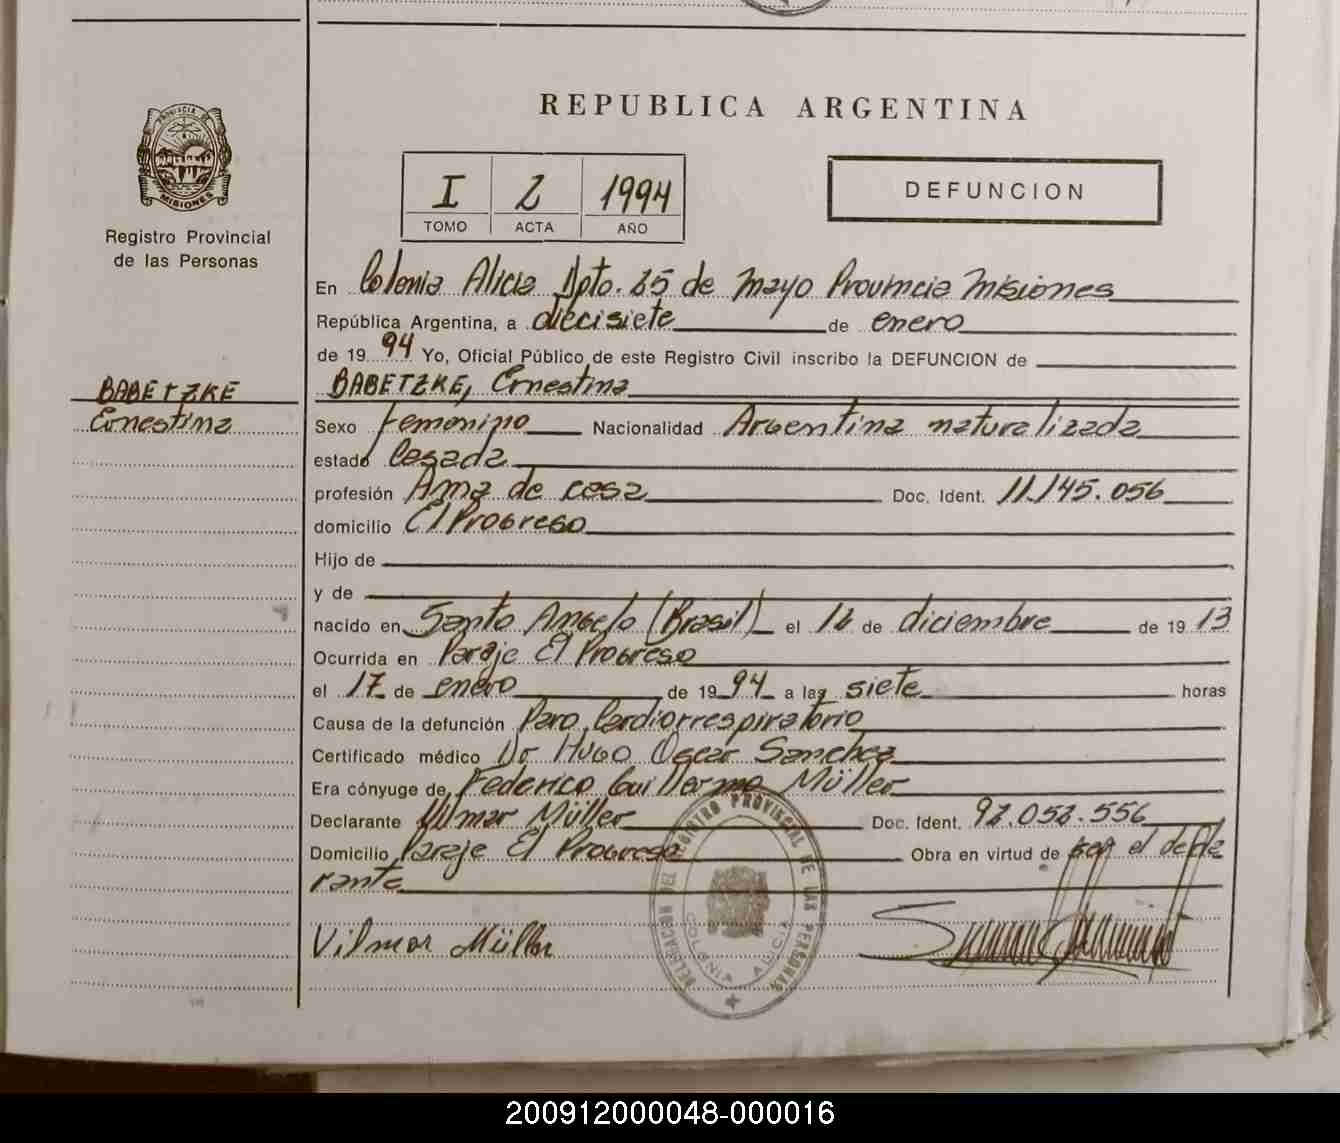 REPUBLICA ARGENTINA
PROVINCIA DE
MISIONES
Registro Provincial
de las Personas
I 2 1994
TOMO ACTA AÑO
DEFUNCION
En Colonia Alicia Dpto. 25 de Mayo Provincia Misiones
República Argentina, a diecisiete de enero
de 19 94 Yo, Oficial Público de este Registro Civil inscribo la DEFUNCION de
BABETZKE, Ernestina
BABETZKE
Ernestina
Sexo femenino Nacionalidad Argentina naturalizada
estado Casada
profesión Ama de casa Doc. Ident. 11.145.056
domicilio El Progreso
Hijo de
y de
nacido en Santo Angelo (Brasil) el de diciembre de 19 13
Ocurrida en Paraje El Progreso
el 17 de enero de 19 94 a las siete horas
Causa de la defunción Paro Cardiorrespiratorio
Certificado médico Dr Hugo Oscar Sanchez
Era cónyuge de Federico Guillermo Müller
Declarante Vilmar Müller Doc. Ident. 92.052.556
Domicilio Paraje El Progreso Obra en virtud de ser el decla
rante
Vilmar Müller
DELEGACION DEL REGISTRO PROVINCIAL DE LAS PERSONAS
COLONIA ALICIA
200912000048-000016